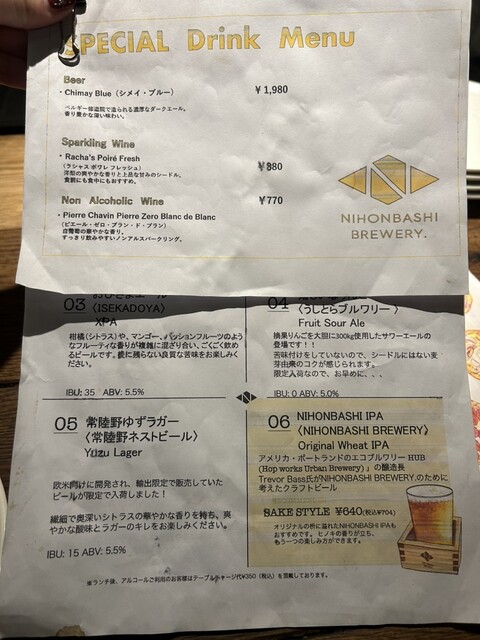 SPECIAL Drink Menu
Beer
・Chimay Blue（シメイ・ブルー） ¥1,980
ベルギー修道院で造られる濃厚なダークエール。
香り豊かな深い味わい。
Sparkling Wine
・Racha's Poiré Fresh ¥880
（ラシャス ポワレ フレッシュ）
洋梨の爽やかな香りと上品な甘みのシードル。
食前にも食中にもおすすめ。
Non Alcoholic Wine ¥770
・Pierre Chavin Pierre Zero Blanc de Blanc
（ピエール・ゼロ・ブラン・ド・ブラン）
白葡萄の華やかな香り。
すっきり飲みやすいノンアルスパークリング。
NIHONBASHI
BREWERY.
03
〈ISEKADOYA〉
XPA
柑橘（シトラス）や、マンゴー、パッションフルーツのよう
なフルーティな香りが複雑に混ざり合い、ごくごく飲め
るビールです。後に残らない良質な苦味をお楽しみく
ださい。
IBU: 35 ABV: 5.5%
04
〈うしとらブルワリー〉
Fruit Sour Ale
摘果りんごを大胆に300kg使用したサワーエールの
登場です！！
苦味付けをしていないので、シードルにはない麦
芽由来のコクが感じられます。
限定入荷なので、お早めに、、、
IBU: 0 ABV: 5.0%
05 常陸野ゆずラガー
〈常陸野ネストビール〉
Yuzu Lager
欧米向けに開発され、輸出限定で販売していた
ビールが限定で入荷しました！
繊細で奥深いシトラスの華やかな香りを持ち、爽
やかな酸味とラガーのキレをお楽しみください。
IBU: 15 ABV: 5.5%
06 NIHONBASHI IPA
〈NIHONBASHI BREWERY〉
Original Wheat IPA
アメリカ・ポートランドのエコブルワリー HUB
(Hop works Urban Brewery)」の醸造長
Trevor Bass氏がNIHONBASHI BREWERY.のために
考えたクラフトビール
SAKE STYLE ¥640(税込¥704)
オリジナルの枡に溢れたNIHONBASHI IPAも
おすすめです。 ヒノキの香りが立ち、
もう一つの楽しみ方ができます。
※ランチ後、アルコールご利用のお客様はテーブルチャージ代¥350（税込）を頂戴しております。